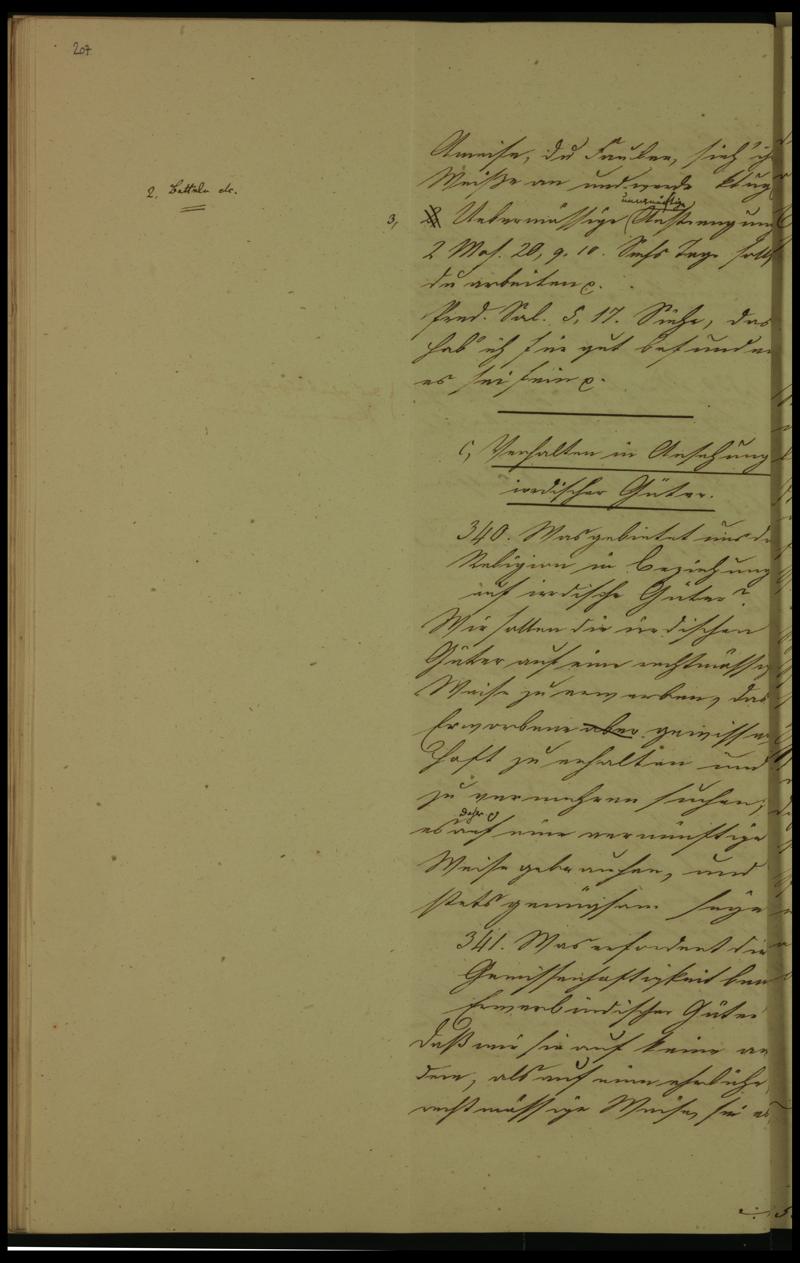 207
2. Betteln etc.
Ameise, du Fauler, sieh' ih
Weise an und werde klug
unvernünftige
3, Uebermässige Anstrengung
2 Mos. 20, 9. 10. Sechs Tage sollst
du arbeiten
Pred. Sal. 5, 17. Siehe, das
hab' ich für gut befunden
es sei fein
c, Verhalten in Ansehung
irdischer Güter.
340. Was gebietet uns d
Religion in Beziehung
auf irdische Güter?
Wir sollen die irdischen
Güter auf eine rechtmässi
Weise zu erwerben, das
Erworbene aber gewissen
haft zu erhalten und
zu vermehren suchen;
daher
es auf eine vernünftige
Weise gebrauchen, und
stets genügsam seyn
341. Was erfordert die
Gewissenhaftigkeit bey
Erwerb irdischer Güter
Daß wir sie auf keine an
dere, als auf eine ehrliche,
rechtmässige Weise, sei es